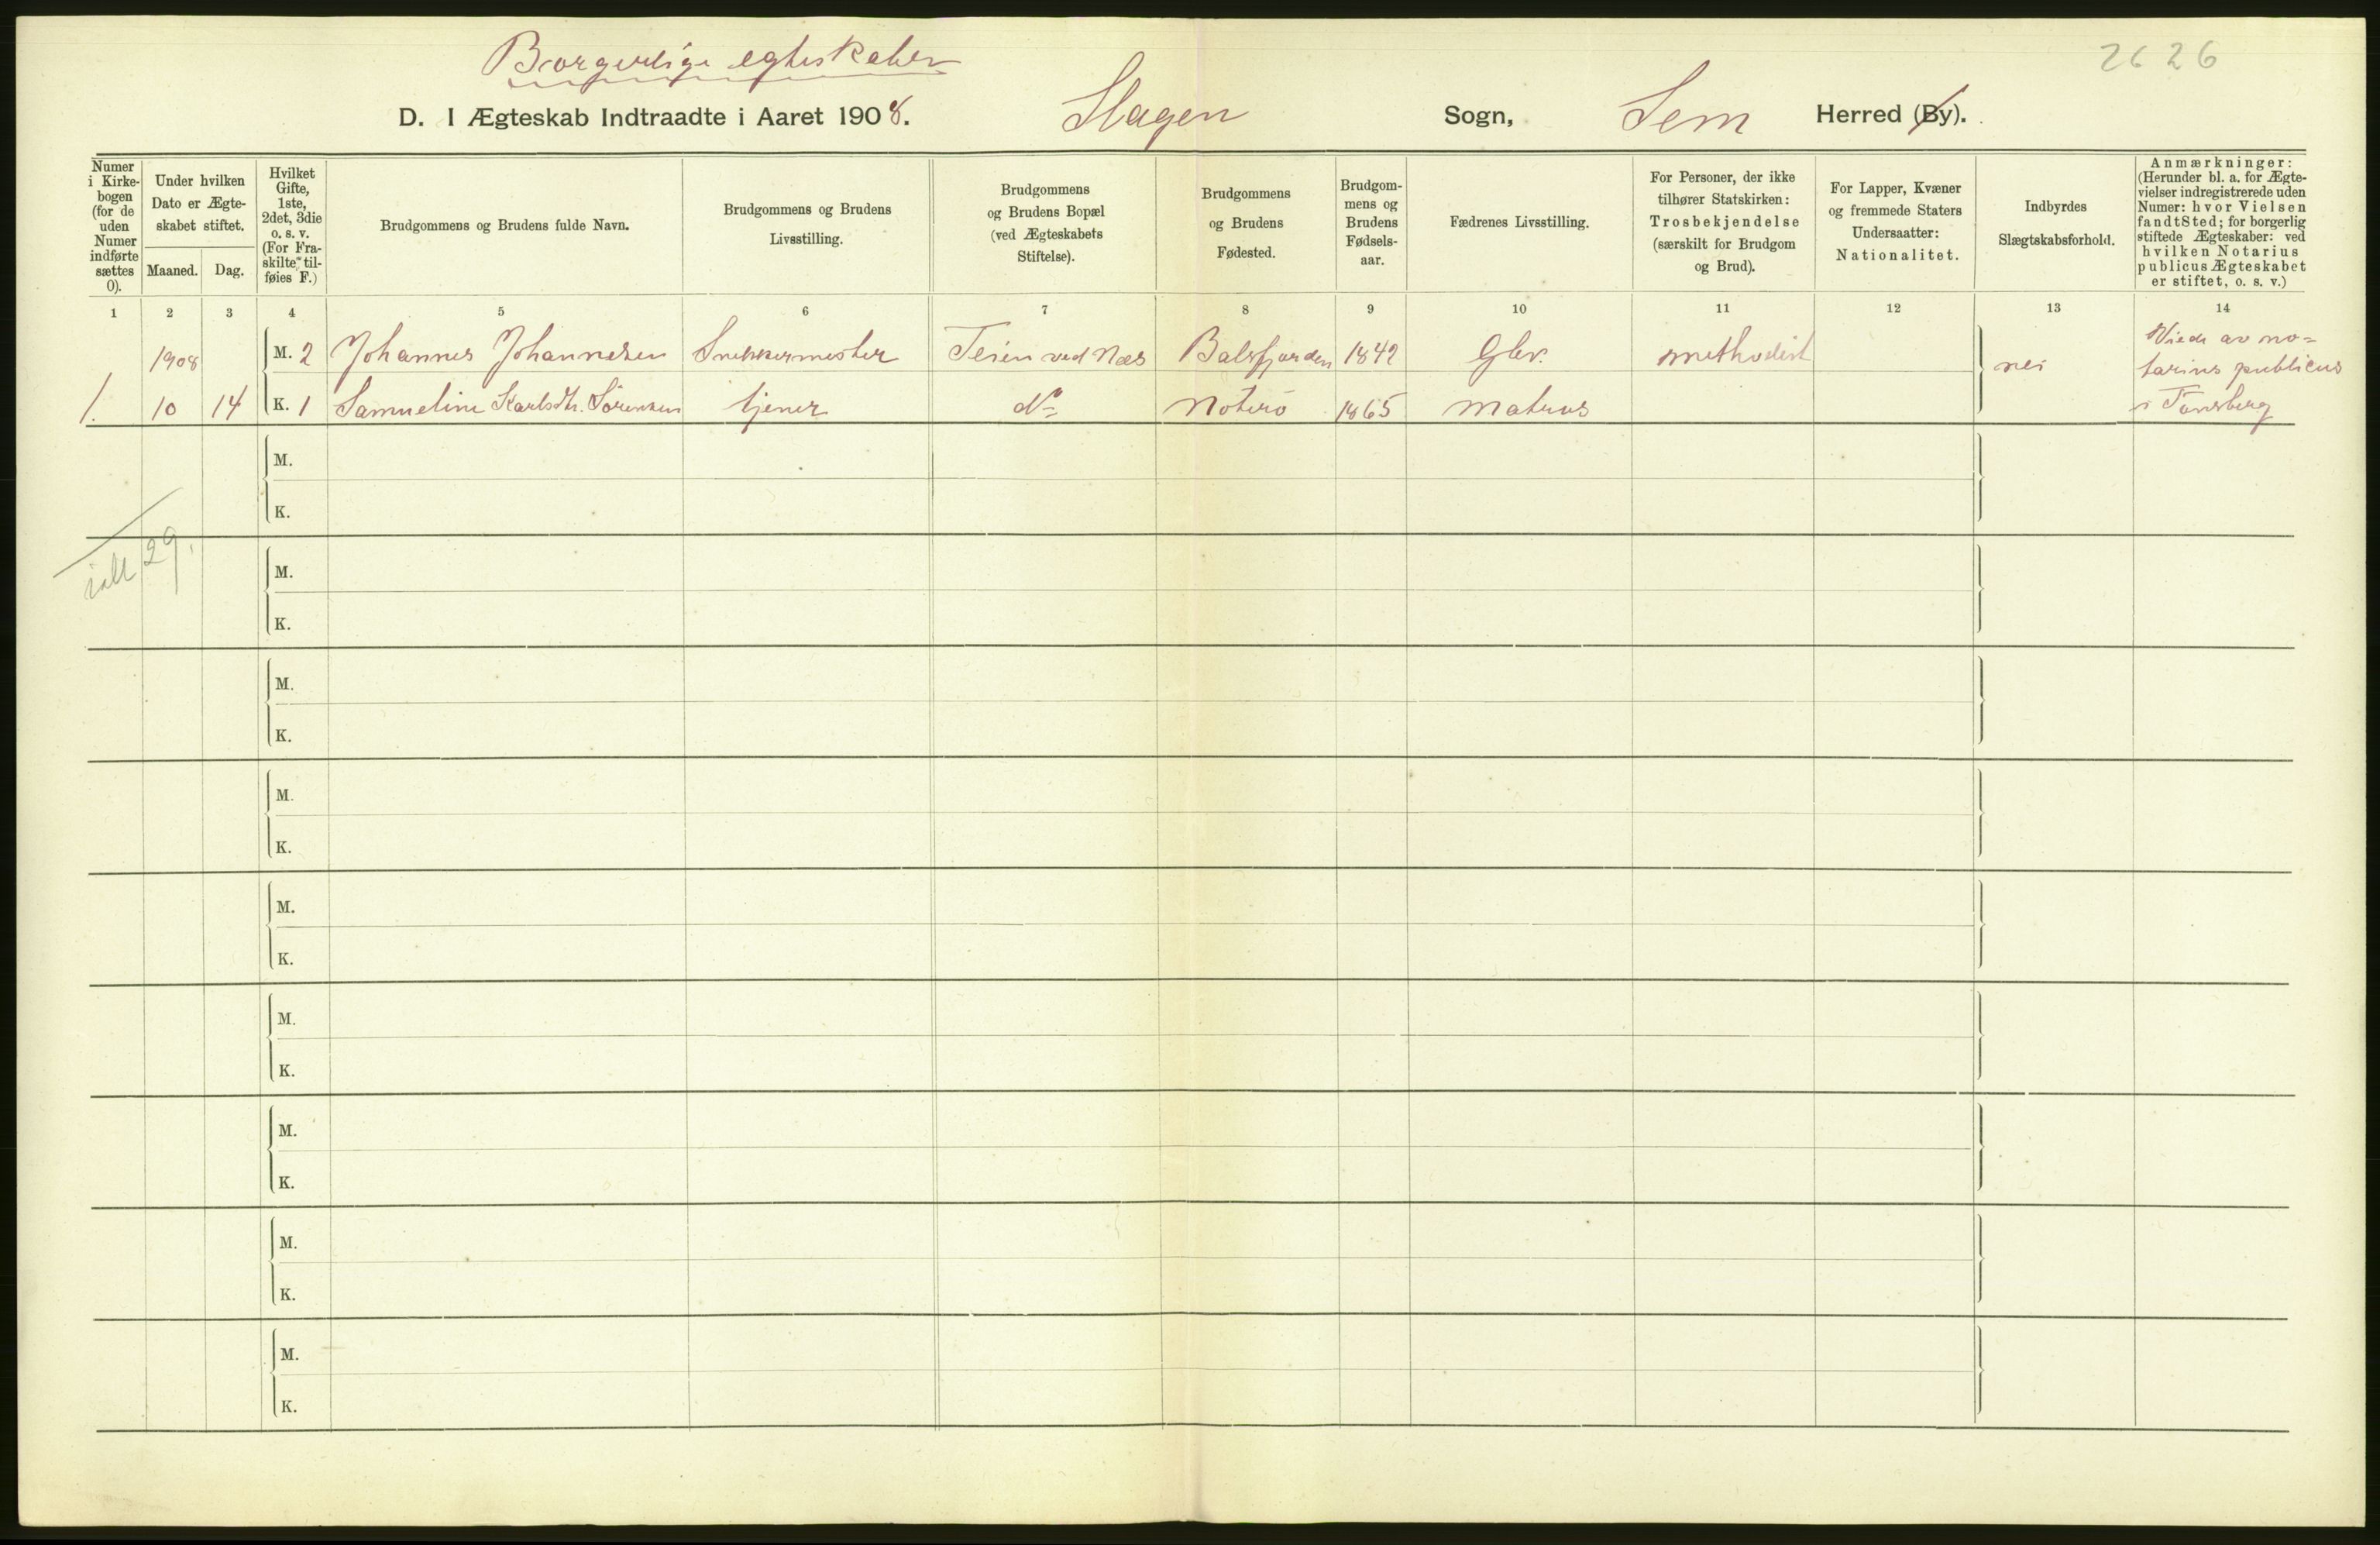 Borgerlige egteskaber
26 26
D. I Ægteskab Indtraadte i Aaret 1908. Slagen Sogn, Sem Herred (By).
Numer i Kirke-bogen (for de uden Numer indførte sættes 0).
Under hvilken Dato er Ægte-skabet stiftet.
Maaned. Dag.
Hvilket Gifte, 1ste, 2det, 3die o. s. v. (For Fra-skilte til-føies F.)
Brudgommens og Brudens fulde Navn.
Brudgommens og Brudens Livsstilling.
Brudgommens og Brudens Bopæl (ved Ægteskabets Stiftelse).
Brudgommens og Brudens Fødested.
Brudgom-mens og Brudens Fødsels-aar.
Fædrenes Livsstilling.
For Personer, der ikke tilhører Statskirken: Trosbekjendelse (særskilt for Brudgom og Brud).
For Lapper, Kvæner og fremmede Staters Undersaatter: Nationalitet.
Indbyrdes Slægtskabsforhold.
Anmærkninger: (Herunder bl. a. for Ægte-vielser indregistrerede uden Numer: hvor Vielsen fandt Sted; for borgerlig stiftede Ægteskaber: ved hvilken Notarius publicus Ægteskabet er stiftet, o. s. v.)
1 2 3 4 5 6 7 8 9 10 11 12 13 14
1908 M. 2 Johannes Johannesen Snekkermester Teien ved Næs Balsfjorden 1842 Gbr. methodist nei Viede av no=
tarius publicus
1. 10 14 K. 1 Samueline Karlsdtr. Sørensen tjener do Nøterø 1865 Matros i Tønsberg
M.
K.
ialt 29.
M.
K.
M.
K.
M.
K.
M.
K.
M.
K.
M.
K.
M.
K.
M.
K.